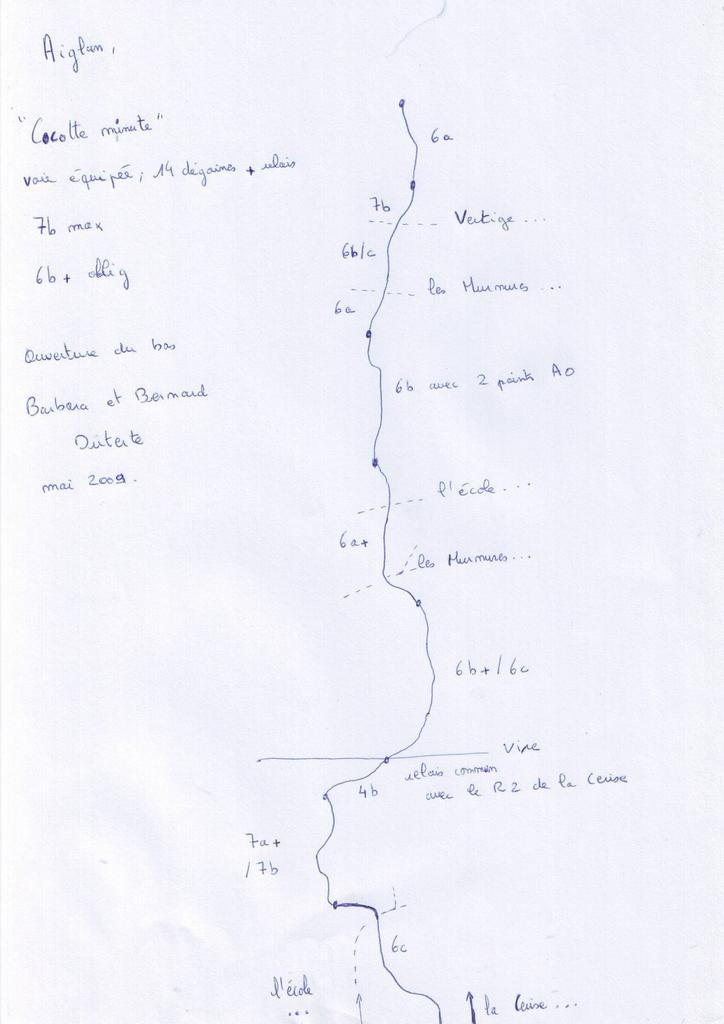 Aiglun,
"Cocotte minute"
voie équipée, 14 dégaines + relais
7b max
6b+ oblig
Ouverture du bas
Barbara et Bernard
mai 2009.
6a
7b
Vertige ...
6b/c
les Murmures ...
6a
6b avec 2 points A0
l'école ...
6a+
les Murmures ...
6b+/6c
vire
relais commun
avec le R2 de la Cerise
4b
7a+
/7b
6c
l'école
...
la Cerise ...